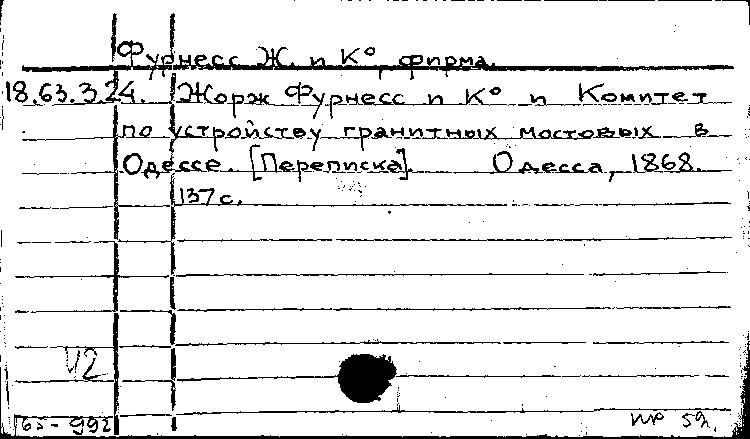 Фурнесс Ж. и К°, фирма.
18.63.3.24. Жорж Фурнесс и К° и Комитет
по устройству гранитных мостовых в
Одессе. [Переписка]. Одесса, 1868.
137 с.
V2
65-992